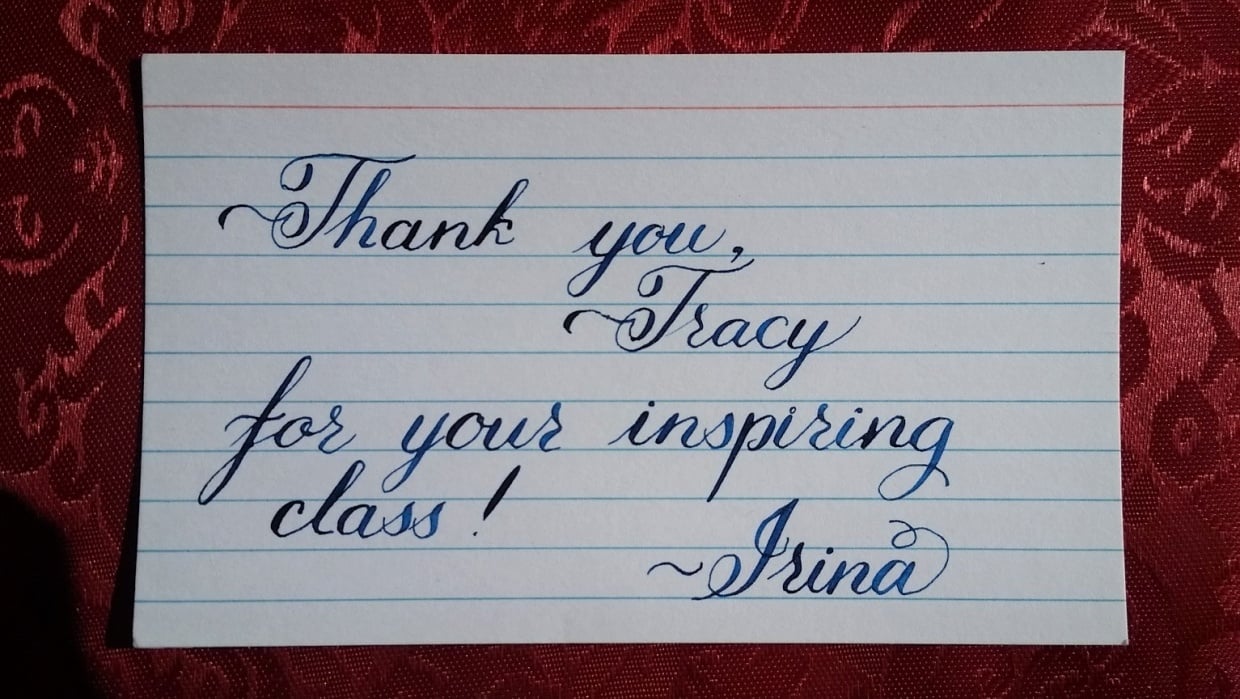 Thank you,
Tracy
for your inspiring
class!
~Irina